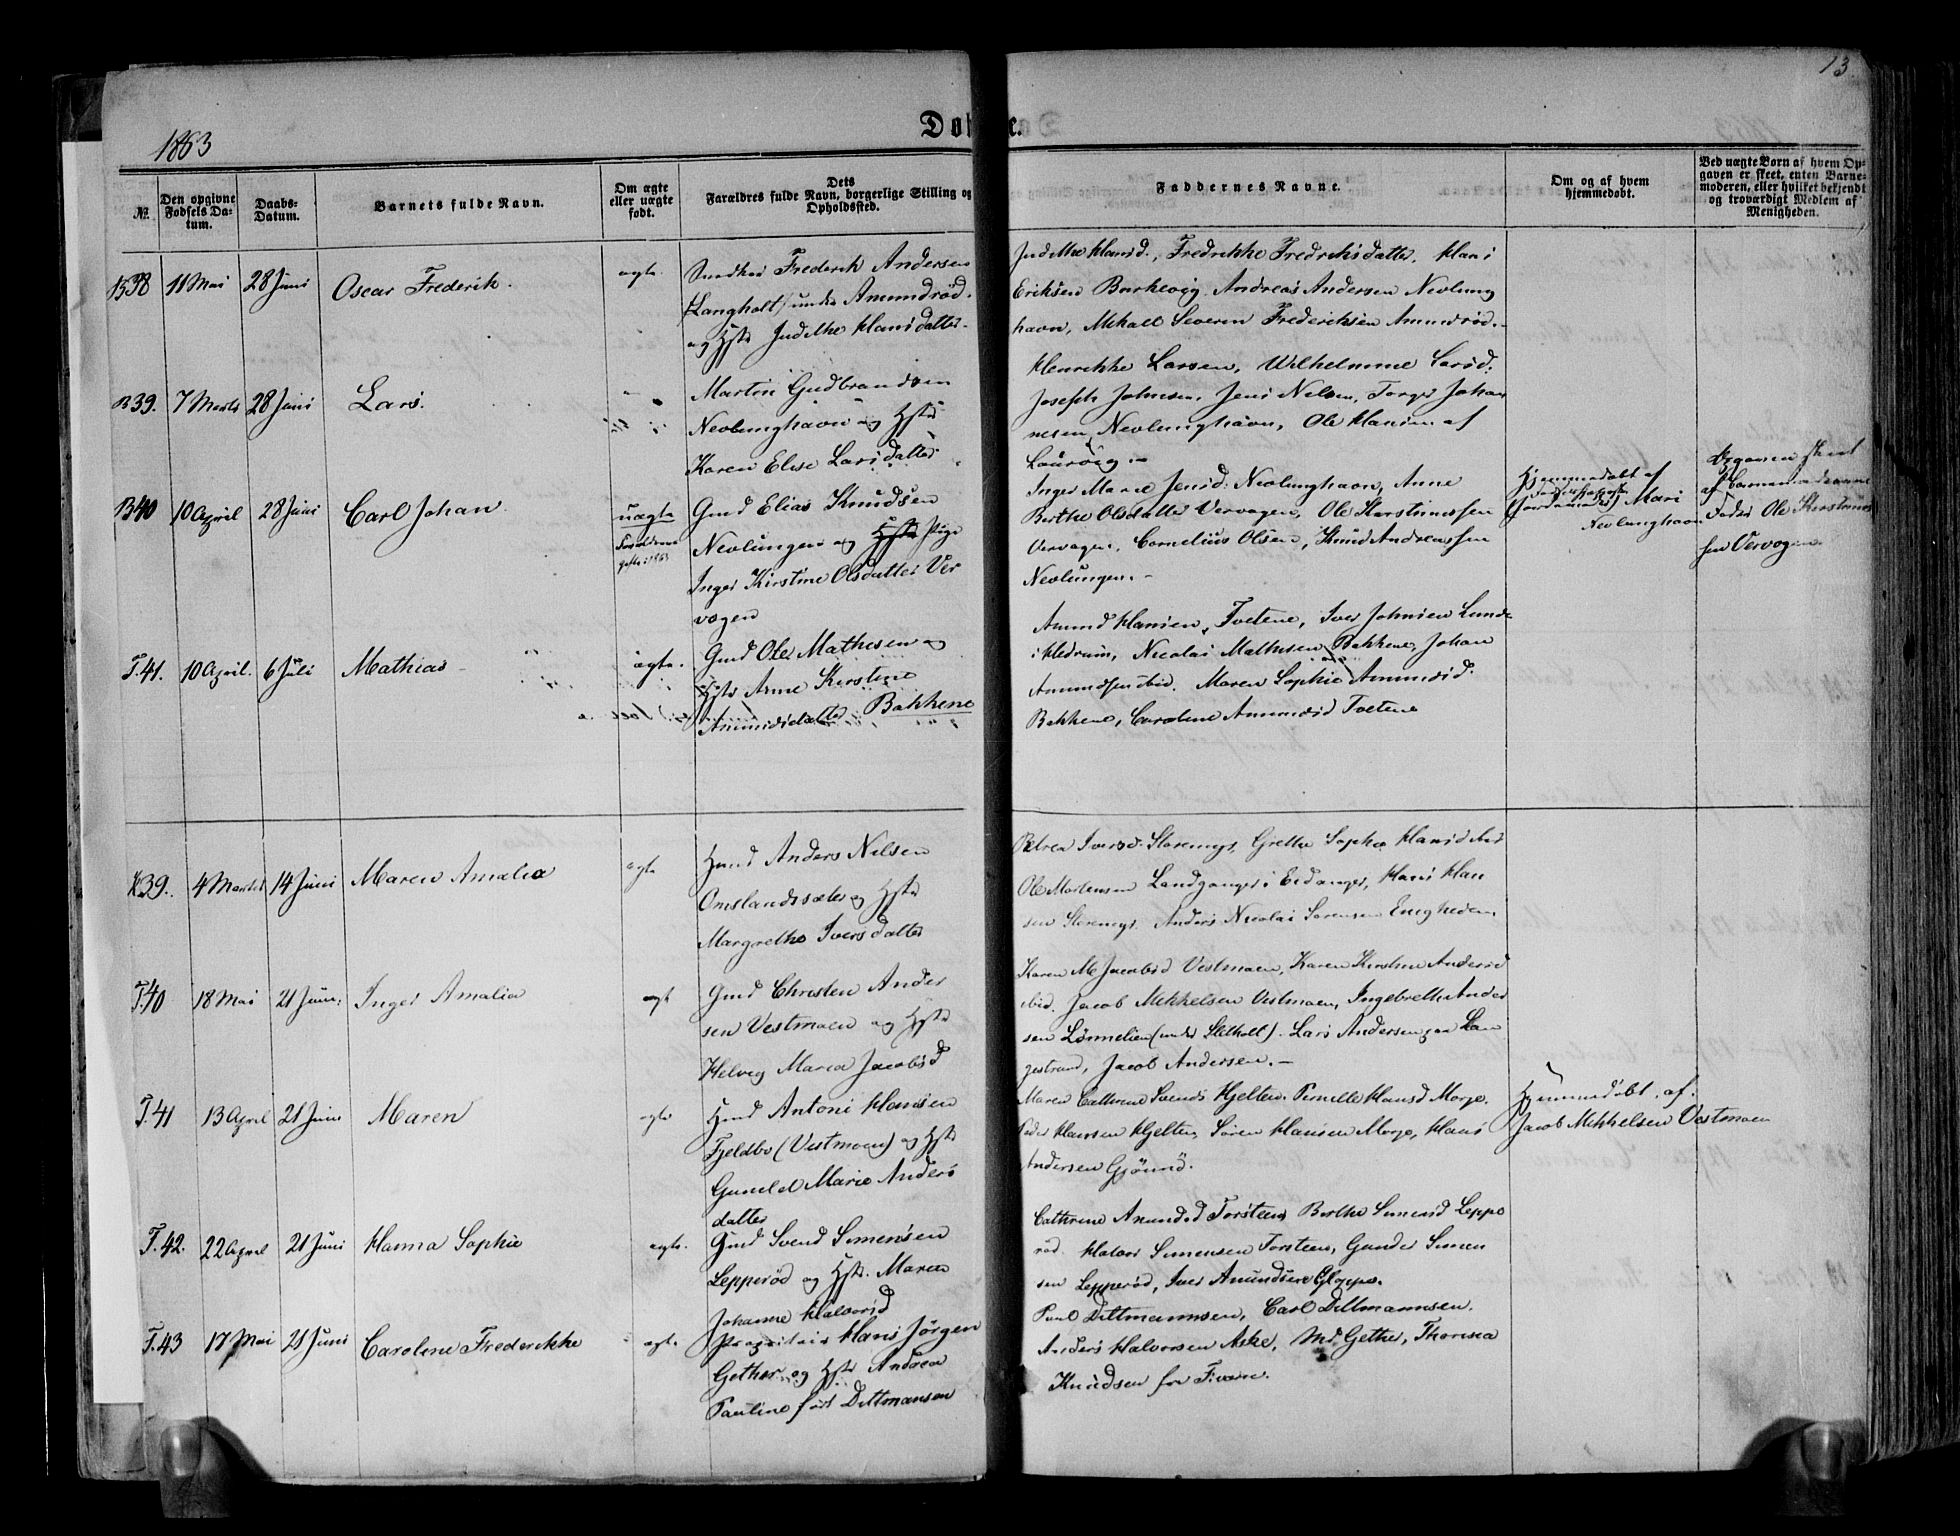 13
1863
Døbte.
№.
Den opgivne Fødsels Datum.
Daabs-Datum.
Barnets fulde Navn.
Om ægte eller uægte født.
Dets Forældres fulde Navn, borgerlige Stilling og Opholdssted.
Faddernes Navne.
Om og af hvem hjemmedøbt.
Ved uægte Børn af hvem Opgaven er skeet, enten Barnemoderen, eller hvilket bekjendt og troværdigt Medlem af Menigheden.
B38 11 Mai 28 Juni Oscar Frederik. ægte
Snedker Frederik Andersen
(Langholt) under Amundrød.
og Hstr Judithe Hansdatter.
Judithe Hansd., Fredrikke Fredriksdatter, Hans
Eriksen Barkevig, Andreas Andersen Nevlung
havn, Mikall Severin Frederiksen Amundrød.-
B39. 7 Marts 28 Juni Lars.
Martin Gudbrandsen
Nevlunghavn og Hstr
Karen Elise Larsdatter
Henrikke Larsen, Wilhelmine Sørød.
Joseph Johnsen, Jens Nelsen, Torger Johan
nesen, Nevlunghavn, Ole Hansen af
Laurvig.-
B40 10 April 28 Juni Carl Johan uægte
Forældrene
gifte i 1863
Gmd Elias Knudsen
Nevlungen og Hstr Pige
Inger Kirstine Olsdatter Ver
vogen
Inger Marie Jensd: Nevlunghavn, Anne
Berthe Olsdatter Vervogen, Ole Kerstinussen
Vervogen, Cornelius Olsen, Knud Andreassen
Nevlungen.-
Hjemmedøbt af
(Jordemoder) Mari
Nevlunghavn
Opgaven skeet
af Barnemoderens
Fader Ole Kerstinus
sen Vervogen
T.41. 10 April. 6 Juli Mathias ægte.
Gmd Ole Mathisen og
Hstr Anne Kirstine
Amundsdatter Bakkene
Amund Hansen, Tvetene, Iver Johnsen Lunde
i Hedrum, Nicolai Mathisen Bakkene, Johan
Amundsen ibid. Maren Sophie Amundsd.
Bakkene, Caroline Amundsd Tvetene
K39. 4 Marts 14 Juni Maren Amalia ægte
Hmd Anders Nilsen
Omslandssæter og Hstr
Margrethe Iversdatter
Petrea Iversd. Storemyr, Grethe Sophie Hansd ibid
Ole Mortensen Landganger i Eidanger, Hans Han
sen Storemyr. Anders Nicolai Sørensen Enigheden.
T.40 18 Mai 21 Juni Inger Amalia ægt
Gmd Christen Ander
sen Vestmoen og Hstr
Helvig Maria Jacobsd
Karen M Jacobsd Vestmoen, Karen Kirstine Andersd
ibid. Jacob Mikkelsen Vestmoen, Ingebreth Ander
sen Lønnelien (under Stelholt). Lars Andersen paa Lan
gestrand, Jacob Andersen.-
T.41 13 April 21 Juni Maren ægte
Hmd Antoni Hansen
Fjeldbo (Vestmoen) og Hstr
Gunild Marie Anders
datter
Maren Cathrine Svends Hjelten. Pernille Hansd Morje.
Peder Hansen Hjelten, Søren Hansen Morje, Hans
Andersen Gjønnø.
Hjemmedøbt, af
Jacob Mikkelsen Vestmoen
T.42. 22 April 21 Juni Hanna Sophie ægte.
Gmd Svend Simensen
Lepperød og Hstr. Maren
Johanne Halvorsd
Cathrine Amundsd Torsteen, Berthe Simensd Leppe
rød. Halvor Simensen Torsteen, Gunder Simen
sen Lepperød, Iver Amundsen Gloppe.
T.43 17 Mai 21 Juni Caroline Frederikke ægte.
Proprietair Hans Jörgen
Gether og Hstr Andrea
Pauline født Dittmansen
Paul Dittmannsen, Carl Dittmannsen.
Anders Halvorsen Aske, Md. Gether, Theresea
Knudsen fra Fivern.